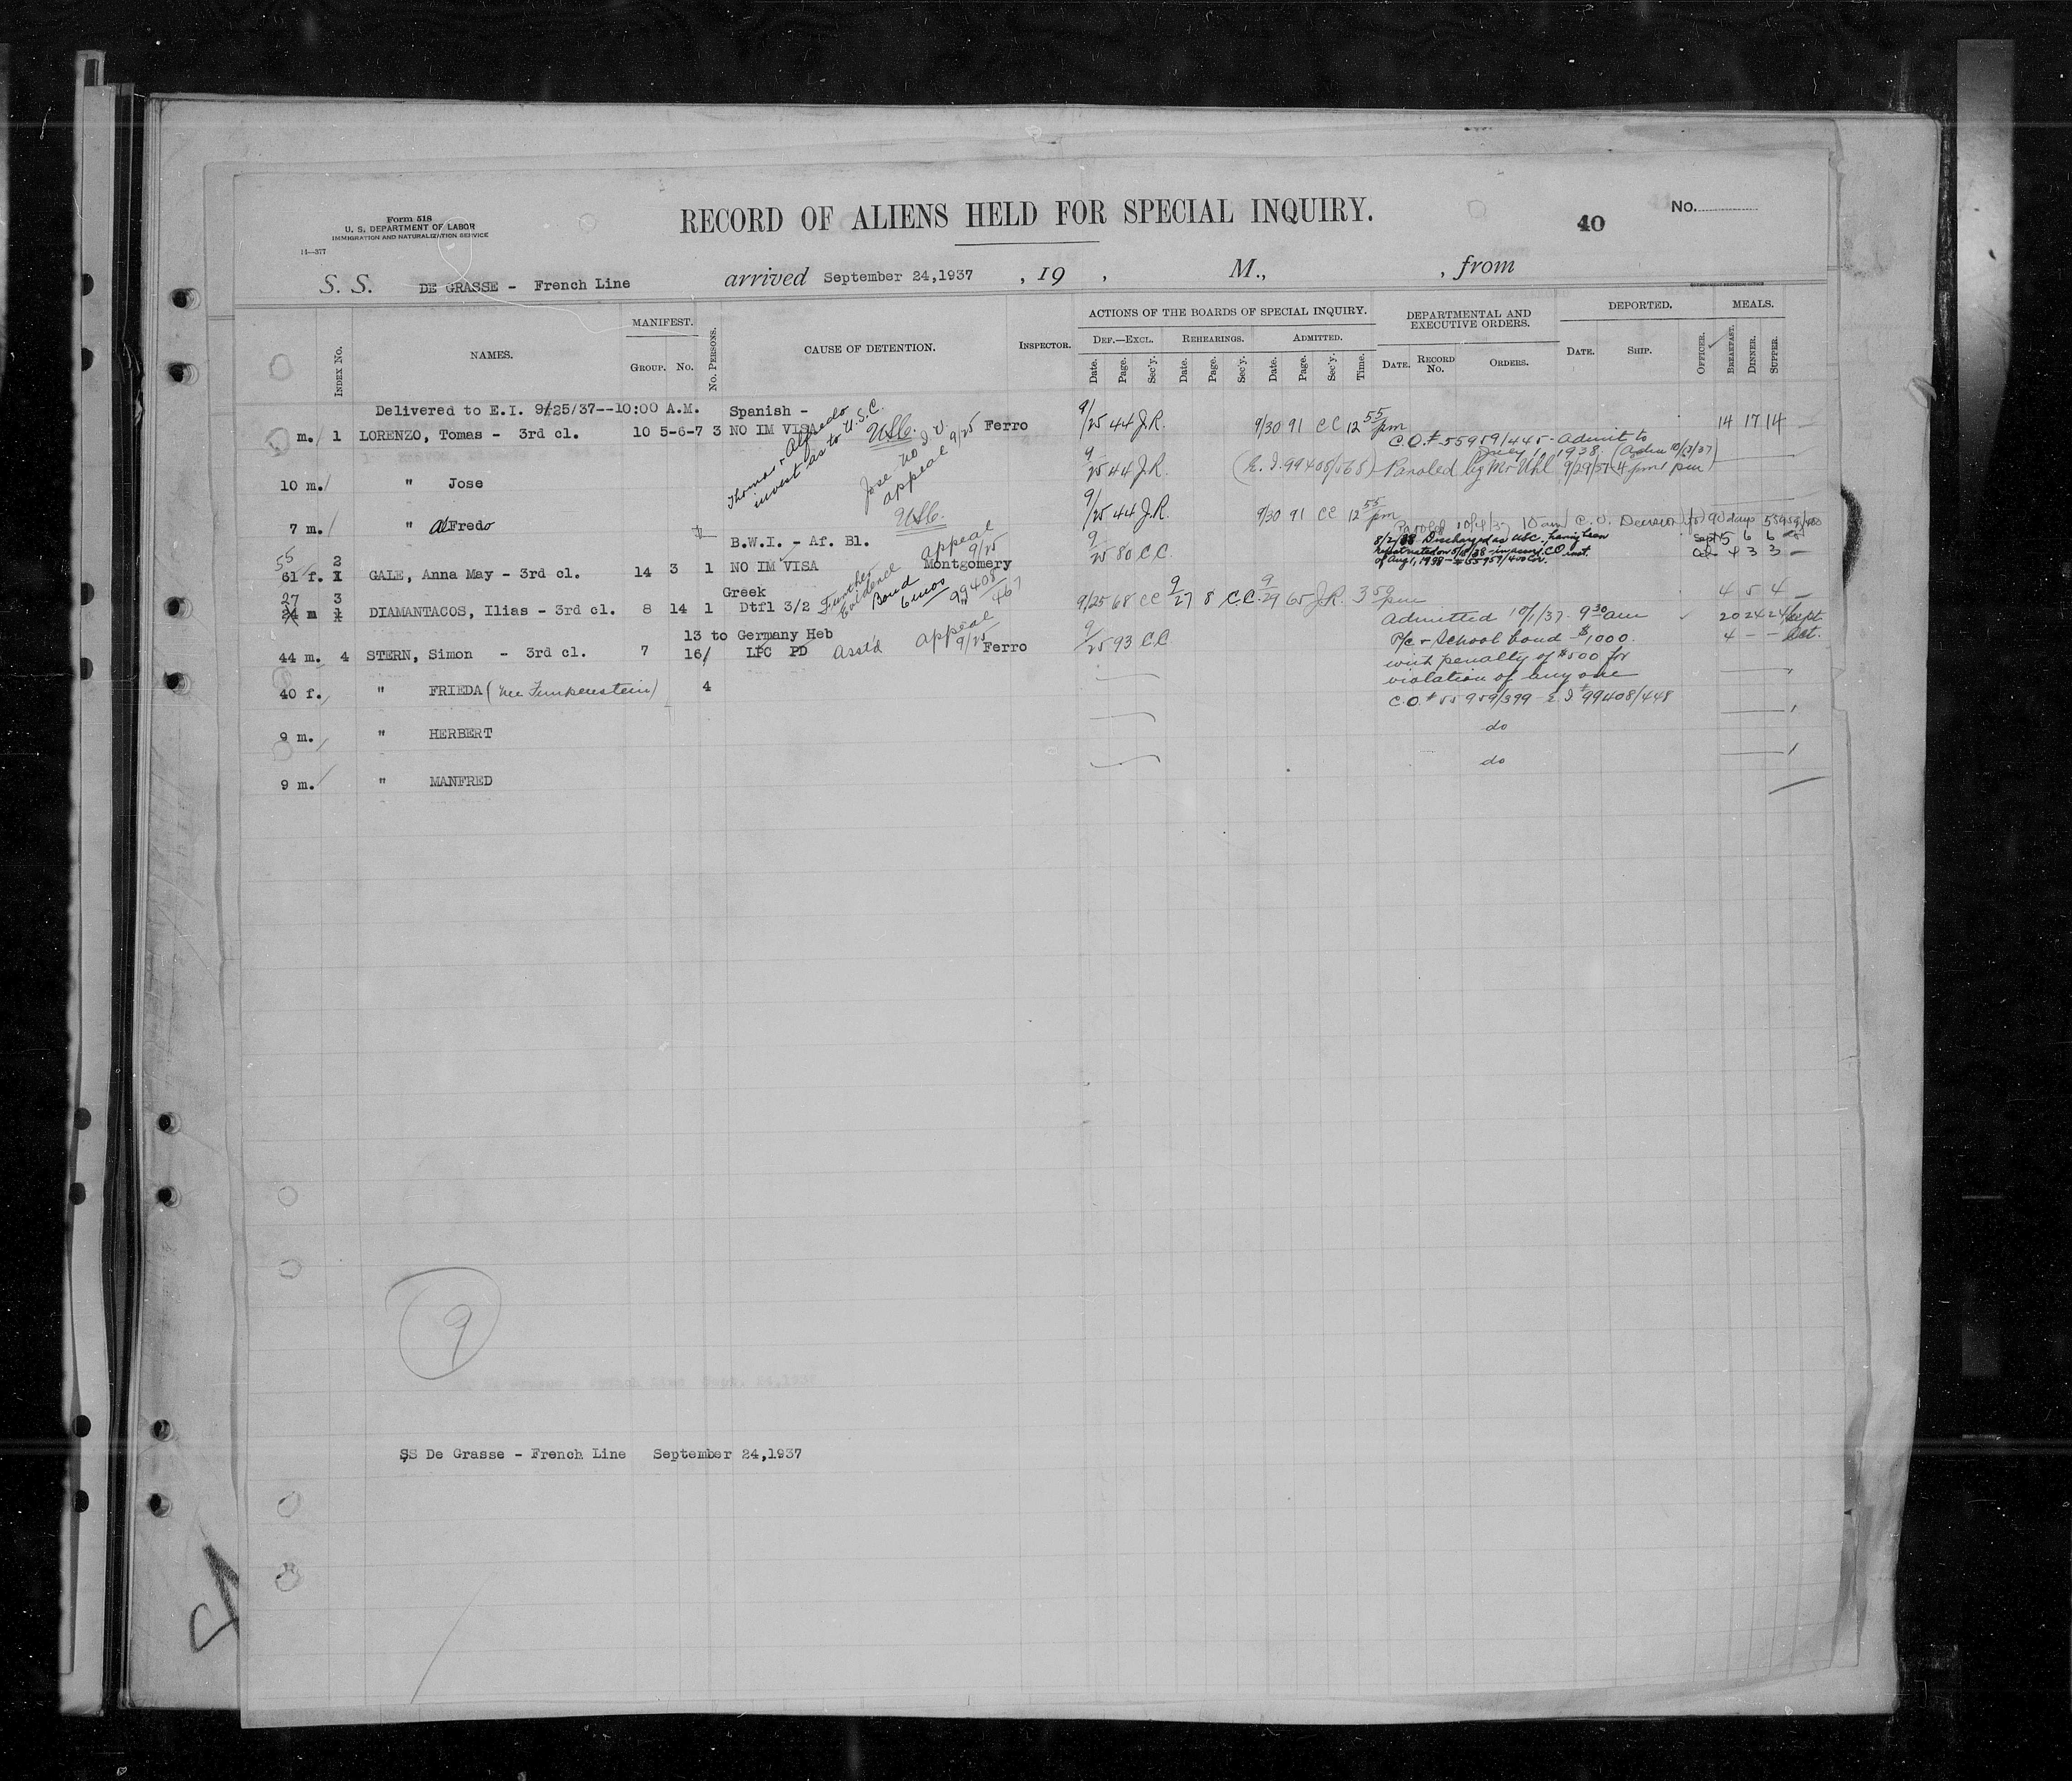 Form 518
U. S. DEPARTMENT OF LABOR
IMMIGRATION AND NATURALIZATION SERVICE
14—377
RECORD OF ALIENS HELD FOR SPECIAL INQUIRY.
40
No.
S. S. DE GRASSE - French Line arrived September 24,1937 , 19 , M., , from
INDEX No. NAMES. MANIFEST. GROUP. No. No. PERSONS. CAUSE OF DETENTION. INSPECTOR.
ACTIONS OF THE BOARDS OF SPECIAL INQUIRY. DEF.—EXCL. REHEARINGS. ADMITTED.
Date. Page. Sec'y. Date. Page. Sec'y. Date. Page. Sec'y. Time.
DEPARTMENTAL AND EXECUTIVE ORDERS. DATE. RECORD No. ORDERS.
DEPORTED. DATE. SHIP. OFFICER. MEALS. BREAKFAST. DINNER. SUPPER.
Delivered to E.I. 9/25/37--10:00 A.M. Spanish -
m. 1 LORENZO, Tomas - 3rd cl. 10 5-6-7 3 NO IM VISA USC. Ferro 9/25 44 J.R. 9/30 91 CC 12 55 pm 14 17 14
Thomas + Alfredo invest as to U.S.C.
Jose no I V. appeal 9/25
C.O.# 55959/445 - Admit to
July 1, 1938. (Adm 10/13/37
10 m. " Jose 9/25 44 J.R. (E.I. 99408/565) Paroled by Mr Uhl 9/29/37 4 pm
7 m. " Alfredo USC. 9/25 44 J.R. 9/30 91 CC 12 55 pm
Paroled 10/4/37 10 am C.O. Decision 90 days
B.W.I. - Af. Bl. appeal 9/25
8/2/38 Discharged as USC. having been
of Aug 1, 1938 - # 55959/400
Sept 5 6 6
Oct - 4 3 3 -
55 61 f. 2 GALE, Anna May - 3rd cl. 14 3 1 NO IM VISA Montgomery 9/25 80 C.C.
Further Evidence Bond 6 mos 99408/467
27 24 m 3 DIAMANTACOS, Ilias - 3rd cl. 8 14 1 Greek Dtfl 3/2 9/25 68 CC 9/27 8 C.C. 9/29 65 J.R. 3 50 pm 4 5 4 -
44 m. 4 STERN, Simon - 3rd cl. 7 13 to 16/ Germany Heb LPC PD Asst'd appeal 9/25 Ferro 9/25 93 CC
Admitted 10/1/37. 9 30 am 20 24 24 Sept.
P/c + School bond $1000. 4 - - Oct.
with penalty of $500 for
violation of any one
C.O.# 55959/399 - E.I.# 99408/448
40 f. " FRIEDA 4
9 m. " HERBERT do
9 m. " MANFRED do
9
SS De Grasse - French Line September 24,1937